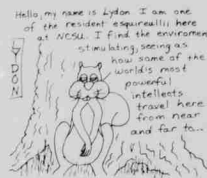 Hello, my name is Lydon. I am one
of the resident esquirewllii here
at NCSU. I find the enviroment
stimulating, seeing as
how some of the
world's most
powerful
intellects
travel here
from near
and far to...
LYDON